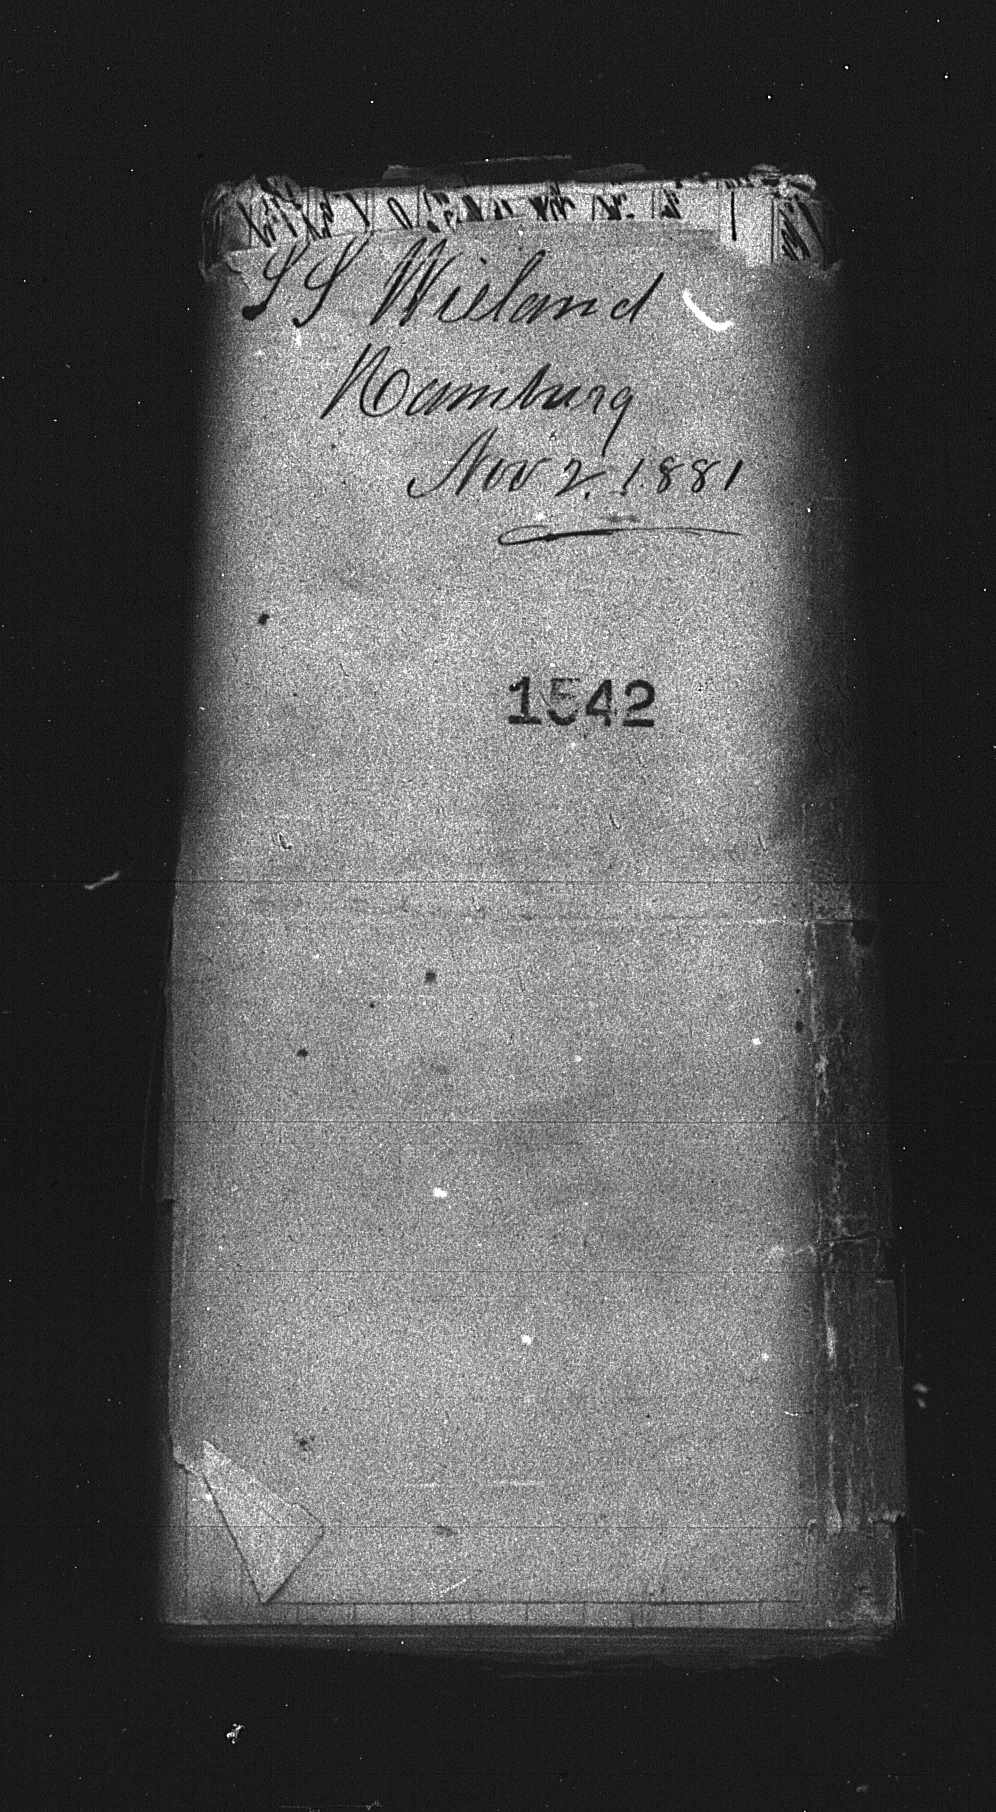 SS Wieland
Hamburg
Nov 2. 1881
1542